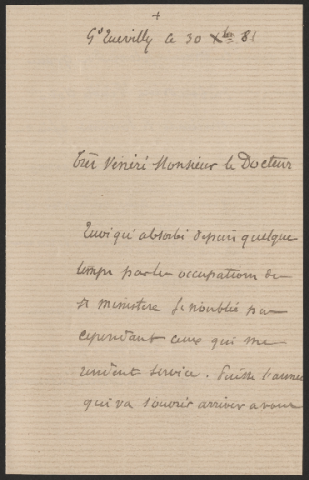 +
Gd Quevilly le 30 Xbre 81
Très Vénéré Monsieur le Docteur
Quoique absorbé depuis quelque
temps par les occupations de
St ministère je n'oublie pas
cependant ceux qui me
rendent service. Puisse l'année
qui va s'ouvrir arriver à vous